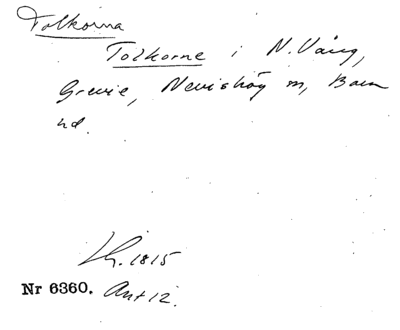 Tolkorna
Tolkorne i N. Vång,
Grevie, Nevishög m, Bara
hd.
Lh. 1815
Nr 6360. Ant 12.